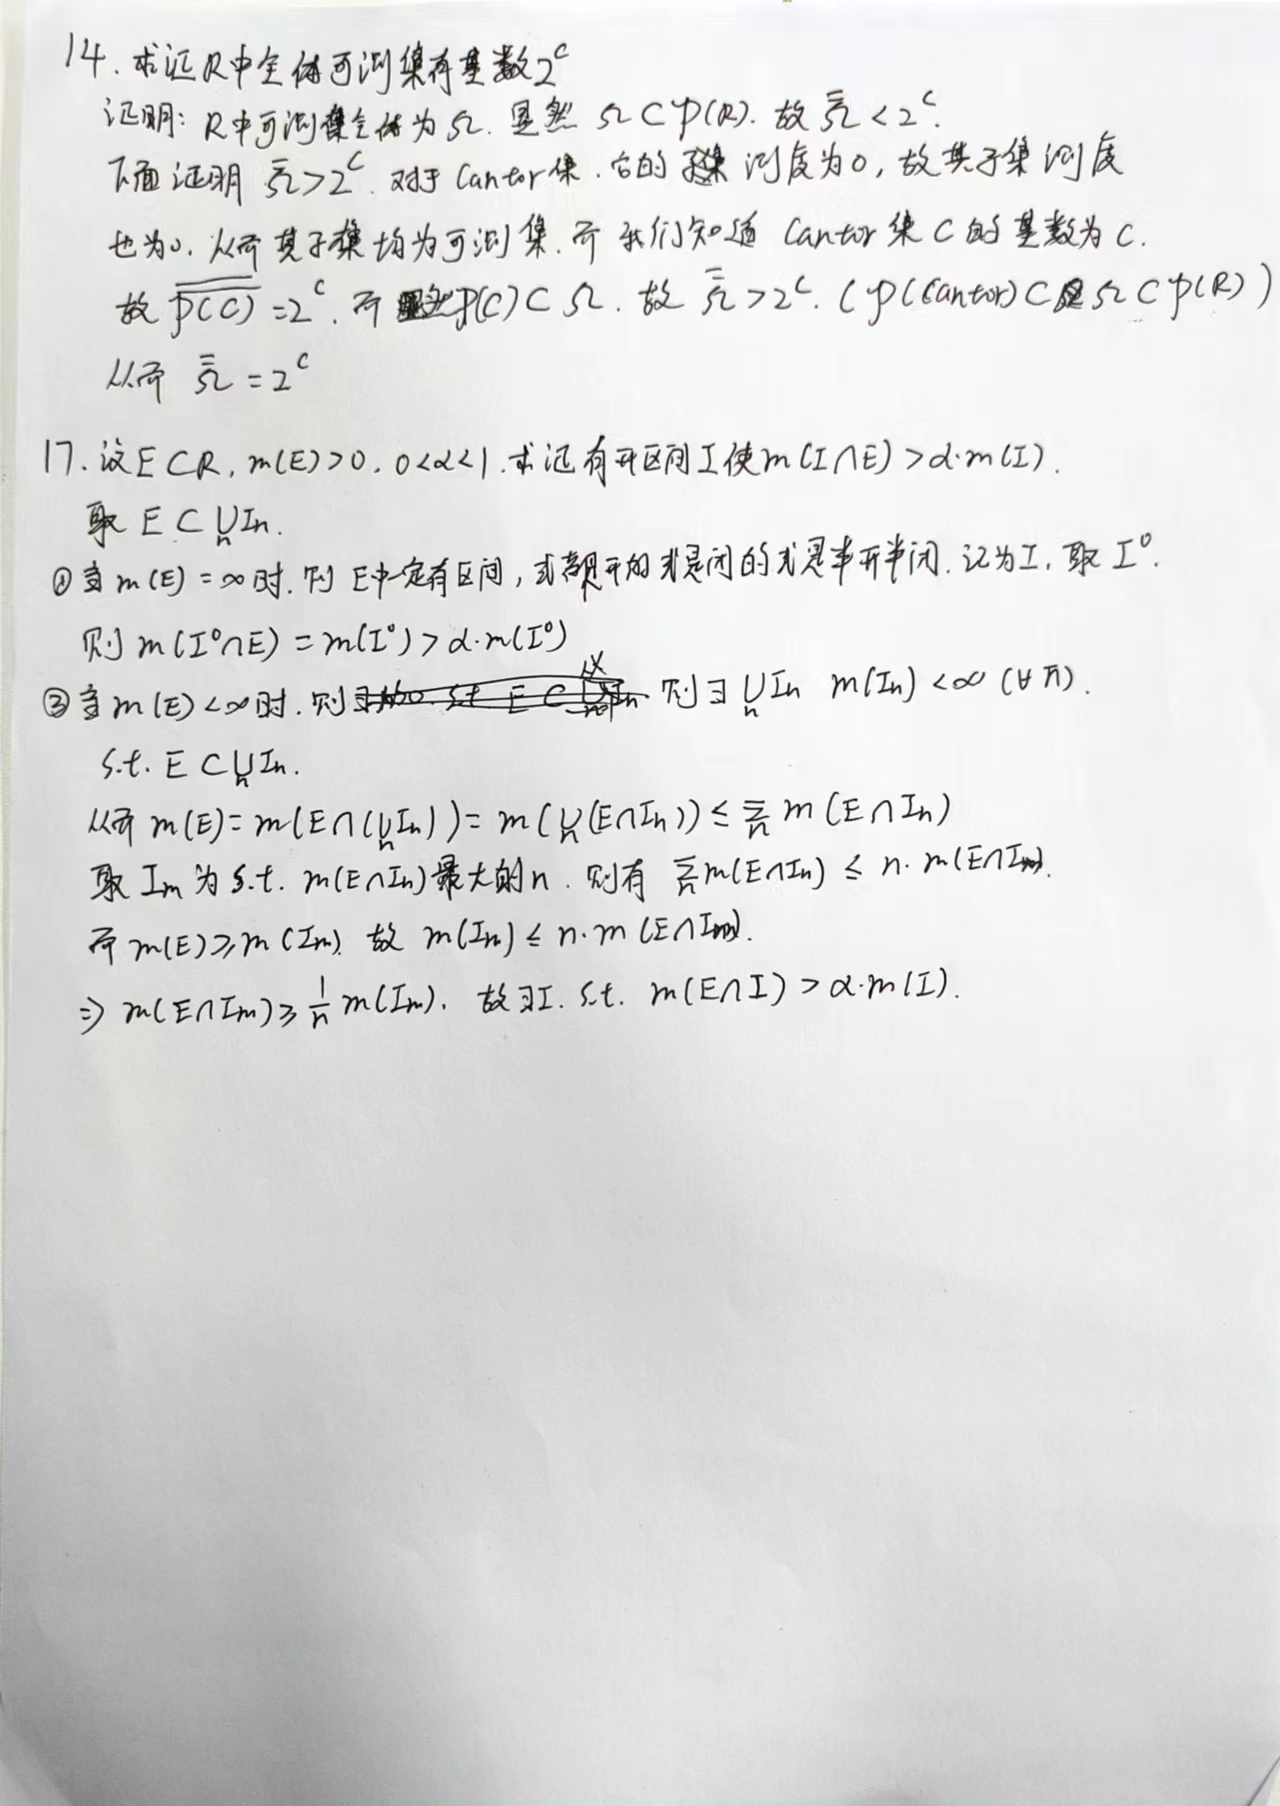 14. 求证R中全体可测集有基数2^c
证明: R中可测集全体为Ω. 显然 Ω⊂P(R). 故 Ω̿<2^c.
下面证明 Ω̿>2^c. 对于Cantor集. 它的测度为0, 故其子集测度
也为0. 从而其子集均为可测集. 而我们知道 Cantor集C的基数为c.
故 P(C) =2^c. 而 P(C)⊂Ω. 故 Ω̿>2^c. (P(Cantor)⊂Ω⊂P(R))
从而 Ω̿=2^c
17. 设E⊂R, m(E)>0. 0<α<1. 求证有开区间I使m(I∩E)>α·m(I).
取 E⊂⋃ₙIn.
① 当m(E)=∞时. 则E中一定有区间, 或是开的或是闭的或是半开半闭. 记为I. 取I⁰.
则 m(I⁰∩E)=m(I⁰)>α·m(I⁰)
② 当m(E)<∞时. 则∃⋃ₙIn m(In)<∞(∀n).
s.t. E⊂⋃ₙIn.
从而 m(E)=m(E∩(⋃ₙIn))=m(⋃ₙ(E∩In))≤∑ₙ m(E∩In)
取Im为s.t. m(E∩In)最大的n. 则有 ∑ₙm(E∩In)≤n·m(E∩Im).
而m(E)≥m(Im). 故 m(Im)≤n·m(E∩Im).
⇒ m(E∩Im)≥1/n m(Im). 故∃I. s.t. m(E∩I)>α·m(I).